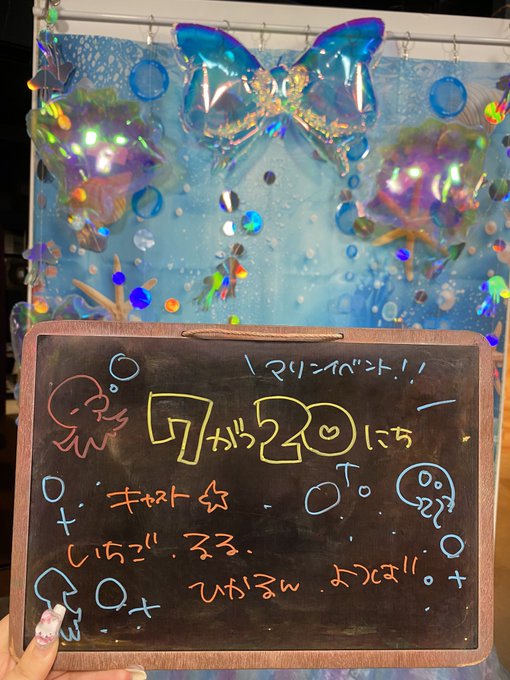 \ マリンイベント!! /
7がつ20にち
キャスト☆
いちご.るる.
ひかるん.よつば!!